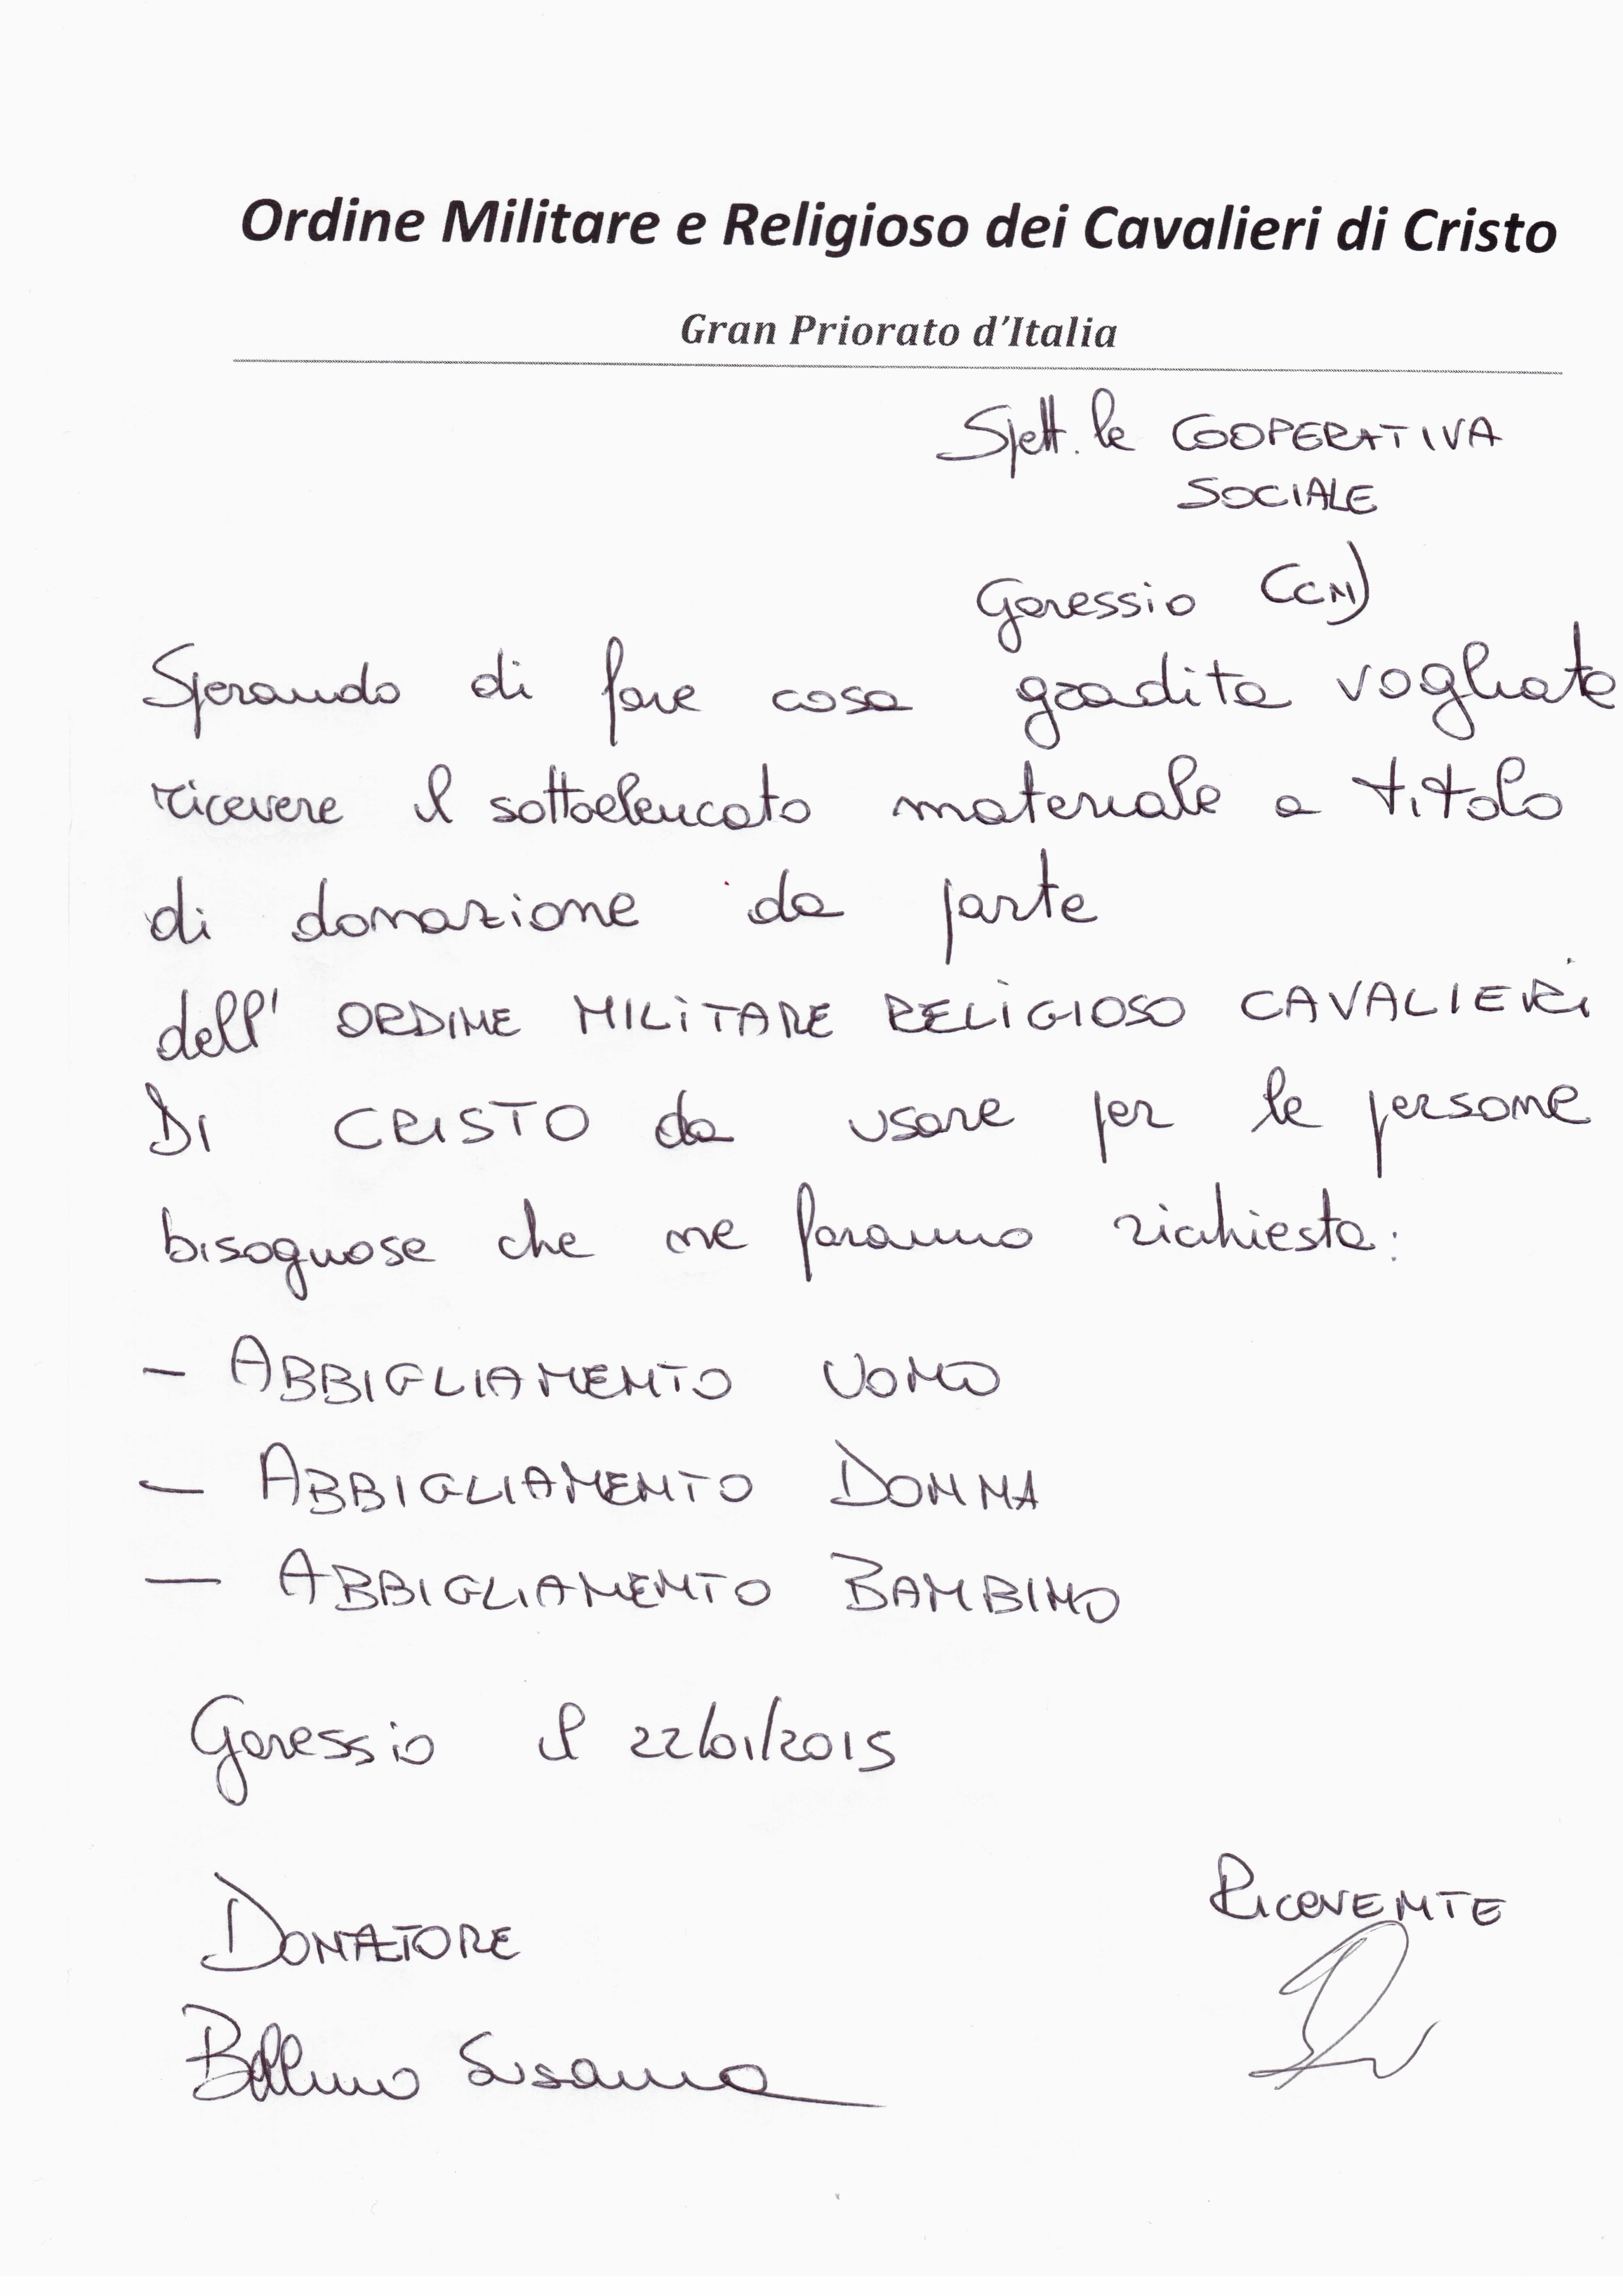 Ordine Militare e Religioso dei Cavalieri di Cristo
Gran Priorato d'Italia
Spett.le COOPERATIVA
SOCIALE
Garessio (CN)
Sperando di fare cosa gradita vogliate
ricevere il sottoelencato materiale a titolo
di donazione da parte
dell' ORDINE MILITARE RELIGIOSO CAVALIERI
DI CRISTO da usare per le persone
bisognose che ne faranno richiesta:
- ABBIGLIAMENTO UOMO
- ABBIGLIAMENTO DONNA
- ABBIGLIAMENTO BAMBINO
Garessio il 22/01/2015
RICEVENTE
DONATORE
Susanna